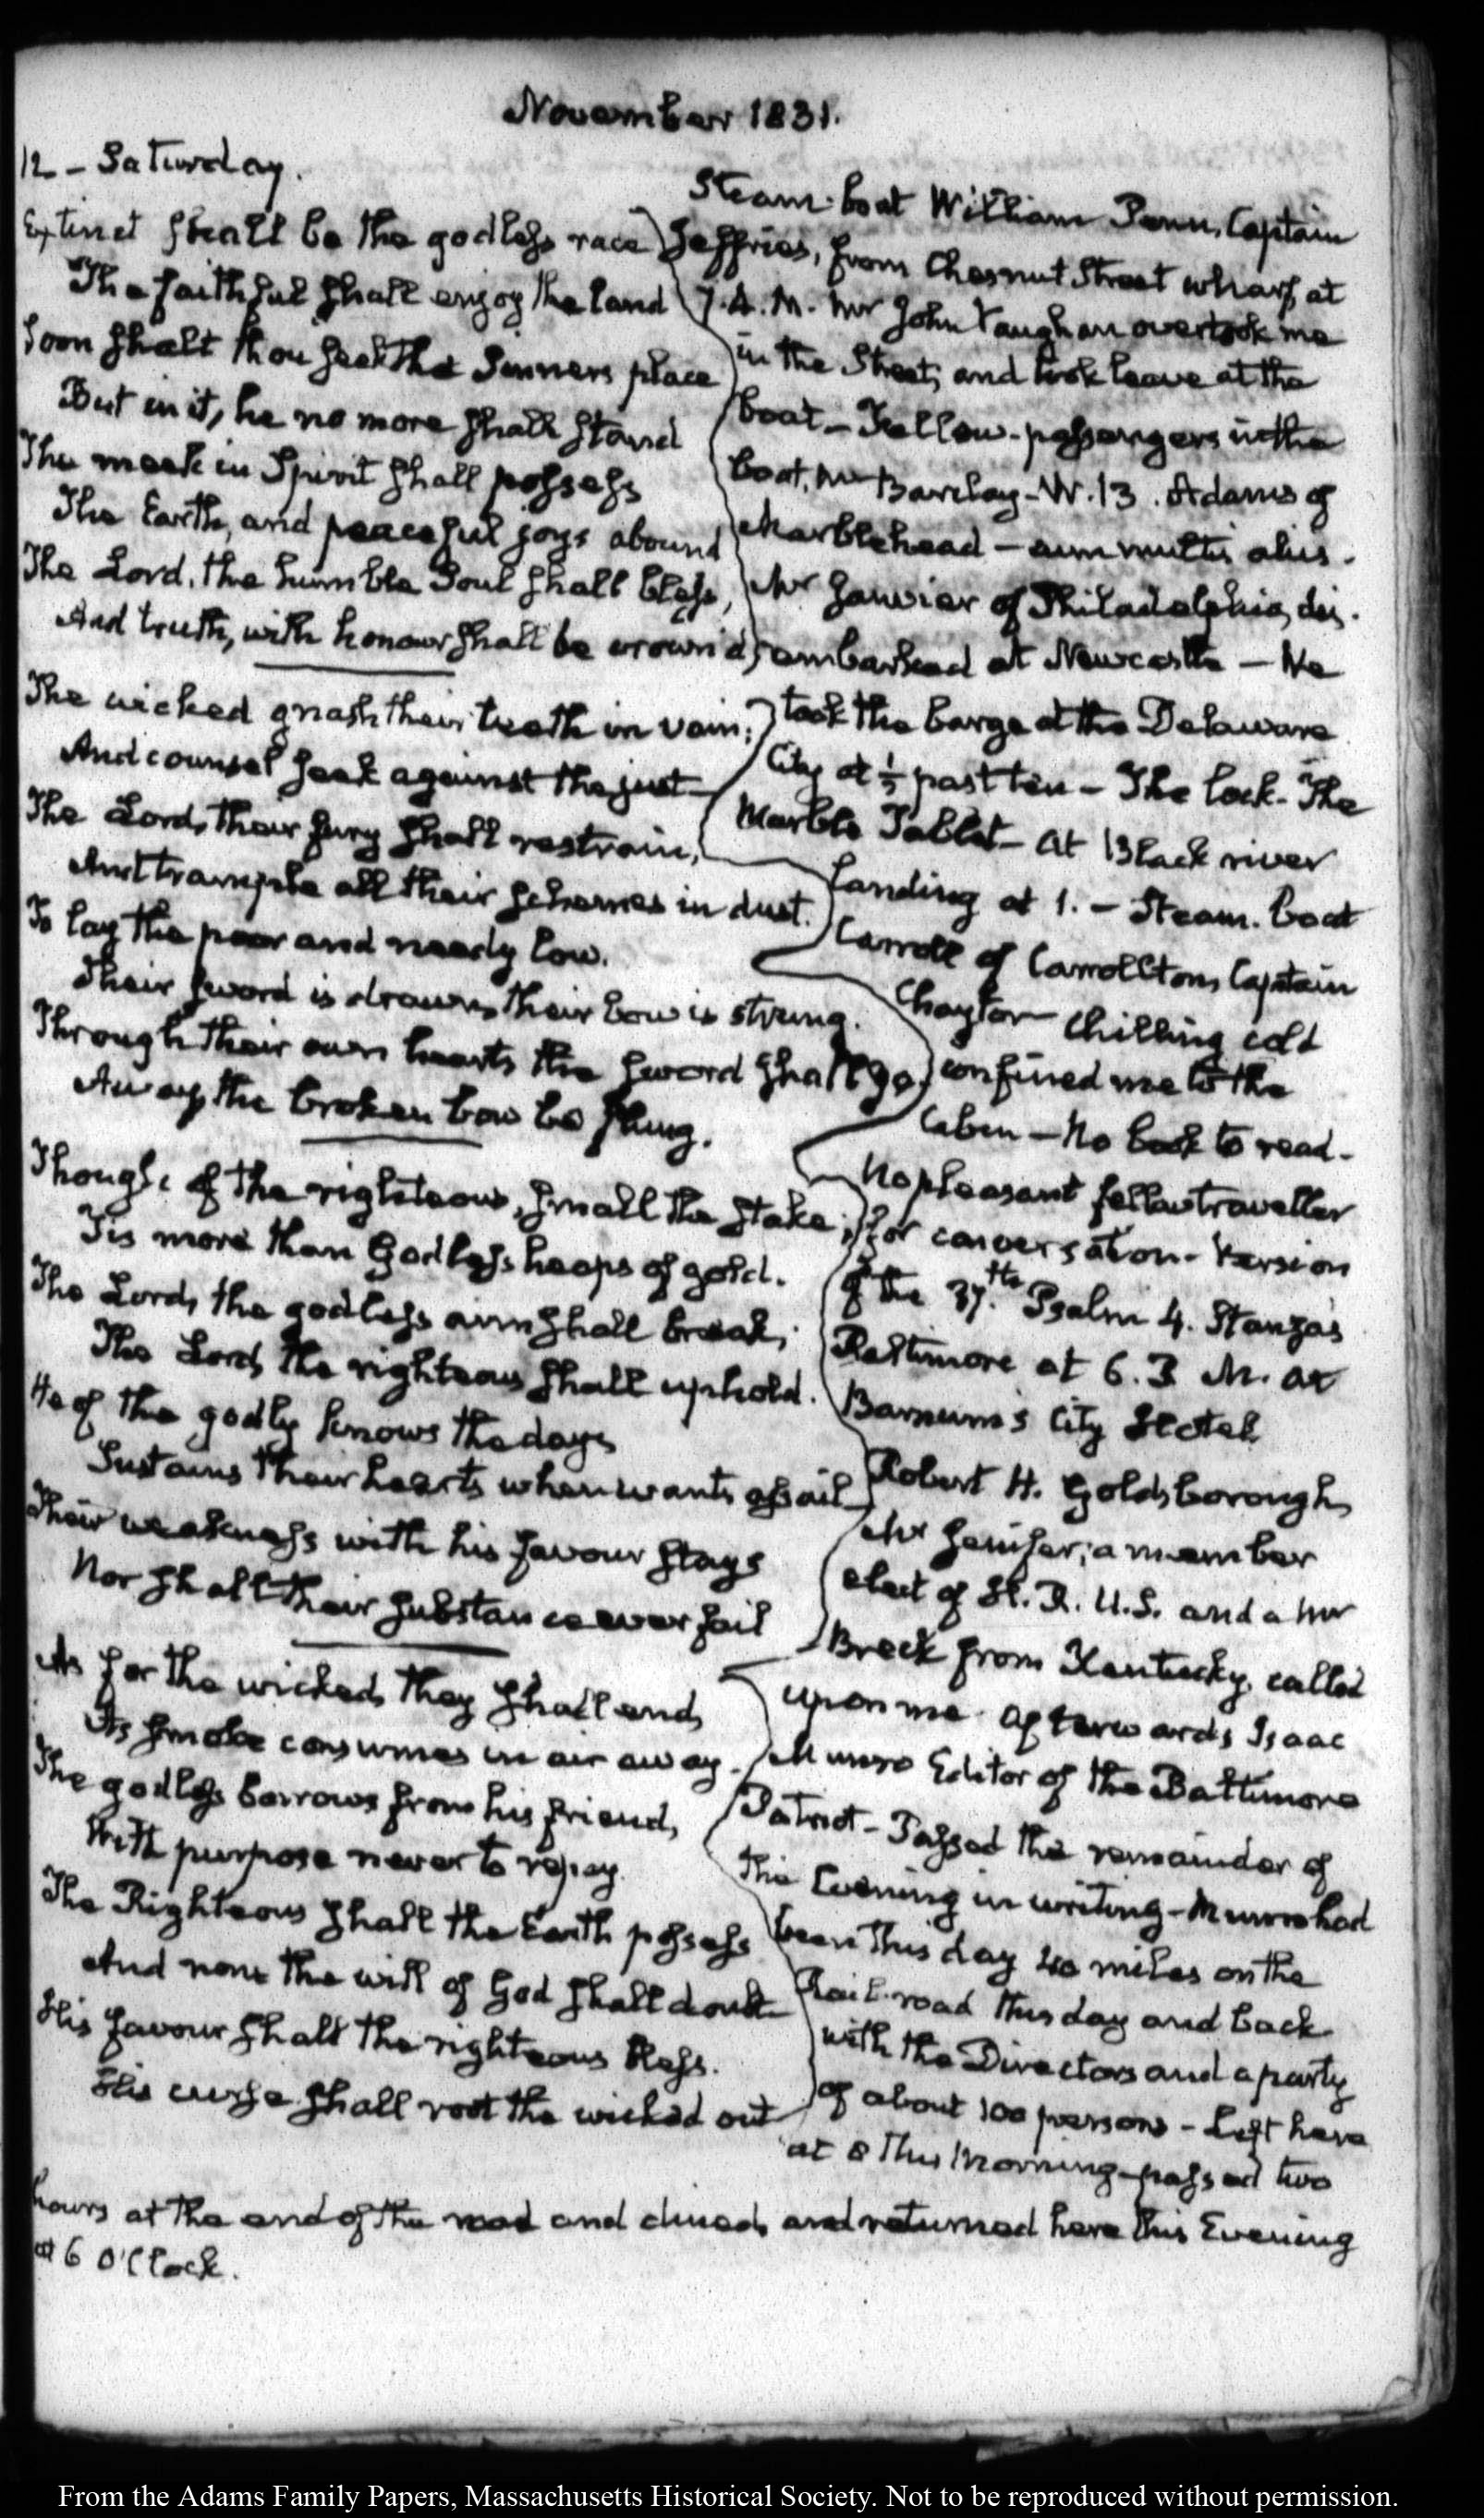 November 1831.
12 - Saturday.
Extinct shall be the godless race
The faithful shall enjoy the land
Soon shalt thou seek the Sinners place
But in it, he no more shall stand
The meek in Spirit shall possess
The Earth, and peaceful joys abound
The Lord, the humble Soul shall bless,
And truth, with honour shall be crown'd,
The wicked gnash their teeth in vain;
And counsel seek against the just
The Lord, their fury shall restrain,
And trample all their schemes in dust.
To lay the poor and needy low.
Their sword is drawn, their bow is strung.
Through their own hearts the sword shall go.
Away, the broken bow be flung.
Though of the righteous, small the stake;
Tis more than Godless heaps of gold.
The Lord, the godless arm shall break;
The Lord, the righteous shall uphold.
He of the godly knows the days
Sustains their hearts when wants assail
Their weakness with his favour stays
Nor shall their substance ever fail
As for the wicked, they shall end,
As smoke consumes in air away.
The godless borrows from his friend,
With purpose never to repay.
The Righteous shall the Earth possess
And none the will of God shall doubt
His favour shall the righteous bless.
His curse shall root the wicked out
Steam-boat William Penn, Captain
Jeffries, from Chesnut Street wharf, at
7. A.M. Mr John Vaughan overtook me
in the Street, and took leave at the
boat - Fellow-passengers in the
boat, Mr Barclay - W. B. Adams of
Marblehead - cum multis aliis.
Mr Janvier of Philadelphia, dis-
embarked at Newcastle - We
took the barge at the Delaware
City at ½ past ten - The lock - The
Marble Tablet - at Black river
landing at 1. - Steam-boat
Carroll of Carrollton, Captain
Chaytor chilling cold
confined me to the
Cabin - No book to read -
No pleasant fellow traveller
for conversation - Version
of the 37.th Psalm 4. Stanzas
Baltimore at 6. P.M. at
Barnum's City Hotel
Robert H. Goldsborough,
Mr Jenifer, a member
elect of H.R. U.S. and a Mr
Breck from Kentucky, called
upon me. afterwards Isaac
Munro Editor of the Baltimore
Patriot - Passed the remainder of
the Evening in writing - Munro had
been this day 40 miles on the
Rail-road this day and back
with the Directors and a party
of about 100 persons - Left here
at 8 this Morning - passed two
hours at the end of the road and dined, and returned here this Evening
at 6 O'Clock.
From the Adams Family Papers, Massachusetts Historical Society. Not to be reproduced without permission.